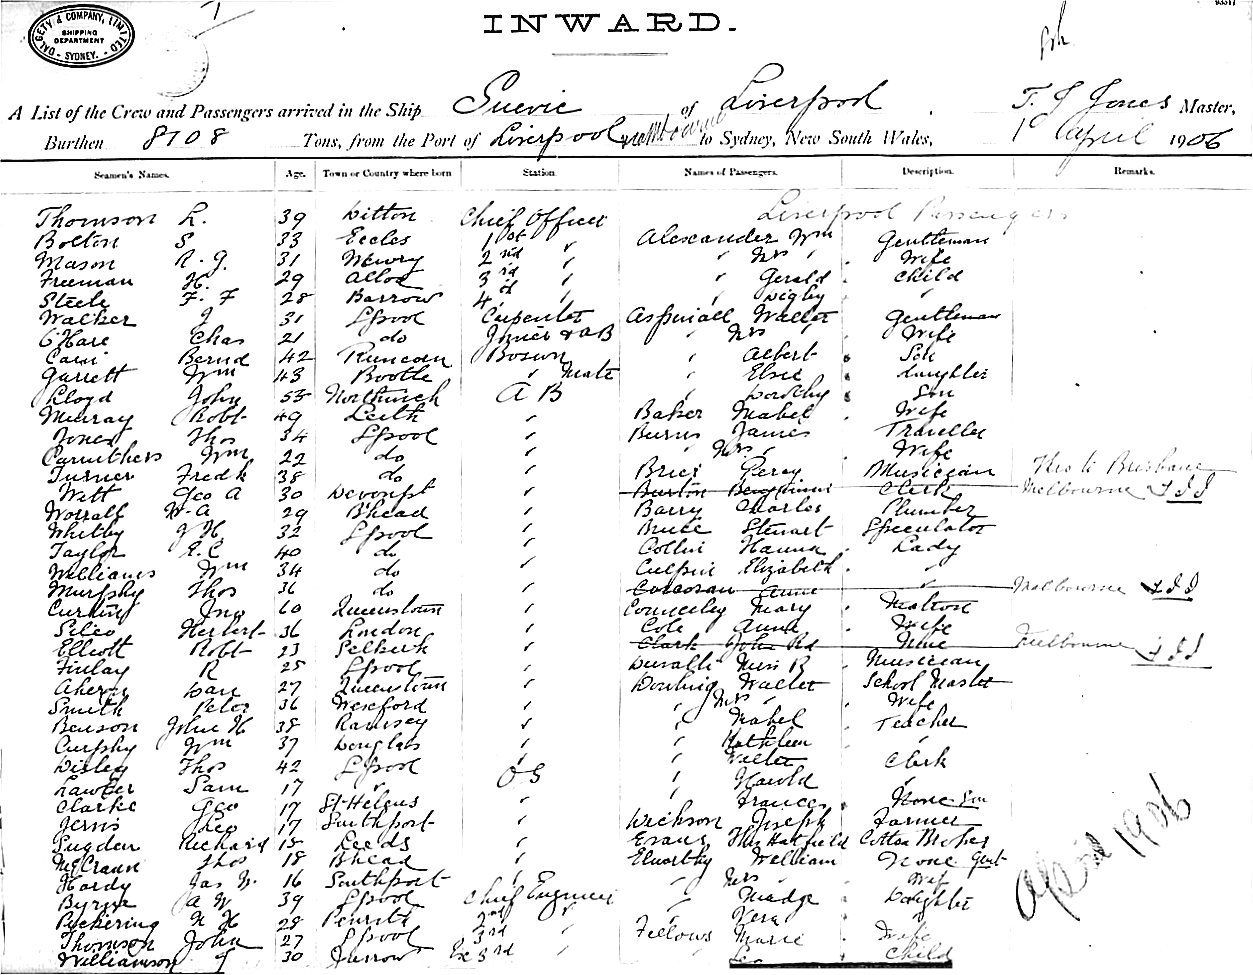 DALGETY & COMPANY, LIMITED
SHIPPING DEPARTMENT
SYDNEY.
INWARD.
A List of the Crew and Passengers arrived in the Ship Suevic of Liverpool T. J Jones Master,
Burthen 8708 Tons, from the Port of Liverpool to Sydney, New South Wales, April 1906
Seamen's Names. Age. Town or Country where born Station. Names of Passengers. Description. Remarks.
Liverpool Passengers
Thomson L. 39 Ditton Chief Officer
Bolton S 33 Eccles 1st " Alexander Wm Gentleman
Mason 31 Newry 2nd " " Mrs " Wife
Freeman H. 29 Alloa 3rd " " Gerald Child
Steele F. F 28 Barrow 4th " " Digby "
Walker J 31 Lpool Carpenter Aspinall Walter Gentleman
O'Hare Chas 21 do Joiner & AB " Mrs " Wife
Bernd 42 Runcorn Bosun " Albert Son
Garrett Wm 43 Bootle " Mate " Elsie Daughter
Lloyd John 53 Northwich A B " Dorothy Son
Murray Robt 49 Leith " Baker Mabel Wife
Jones Thos 34 Lpool " Burns James Traveller
Carruthers Wm 22 do " " Mrs " Wife
Turner Fredk 38 do " Percy Musician Thro to Brisbane
Watt Geo A 30 Devonpt " Burton Benjamin Clerk Melbourne
Worrall W. A 29 B'head " Barry Charles Plumber
Whitby J H 32 Lpool " Bruce Stewart Speculator
Taylor E. C 40 do " Collin Hanna Lady
Williams Wm 34 do " Culpin Elizabeth "
Murphy Thos 36 do " Corcoran Anne Melbourne
Jno 60 Queenstown " Mary Matron
Herbert 36 London " Cole Anne Wife
Elliott Robt 23 Selkirk " Clark John Rd None Melbourne
Finlay R 25 Lpool " Duvalli Miss B Musician
Ahern Dan 27 Queenstown " Dowling Walter School Master
Smith Peter 36 Wexford " " Mrs " Wife
Benson John H 38 Ramsey " " Mabel Teacher
Curphy Wm 37 Douglas " " Kathleen "
Disley Thos 42 Lpool " " Walter Clerk
Lawler Sam 17 " O S " Harold "
Clarke Geo 17 St Helens " " Frances None
Jervis Leo 17 Southport " Joseph Farmer
Sugden Richard 18 Leeds " Evans Thos Hatfield Cotton Broker
McCrann Thos 18 Bhead " Elworthy William None Gent
Hardy Jas W. 16 Southport " " Mrs " Wife
Byrne A W 39 Lpool Chief Engineer " Madge Daughter
Pickering N H 28 Penrith 2nd " " Vera "
Thomson John 27 Lpool 3rd " Fellows Marie Wife
Williamson J 30 Jarrow 3rd " " Child
April 1906